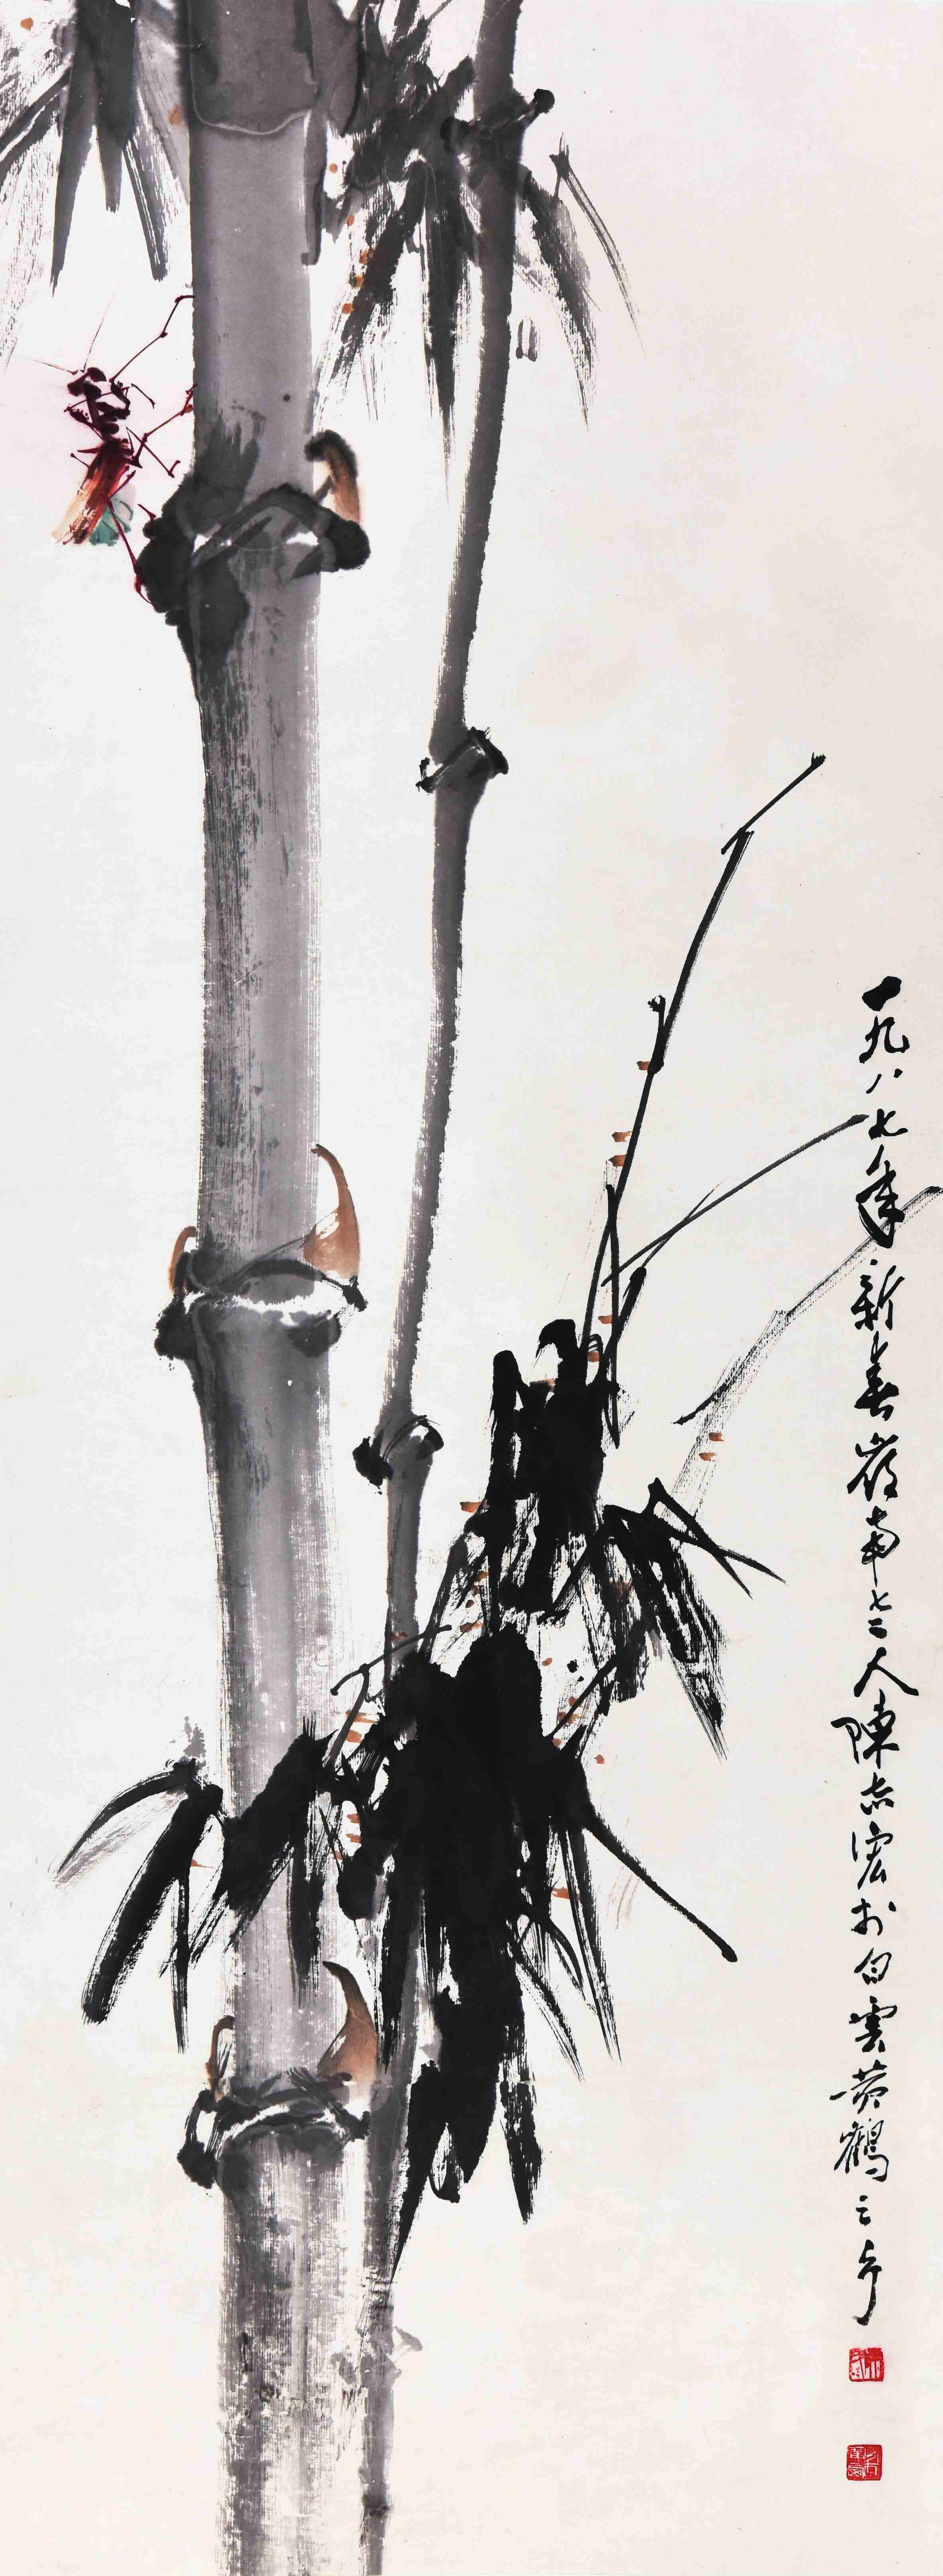 一九八七年新春嶺南七二人陳志宏於白雲黄鶴之鄉